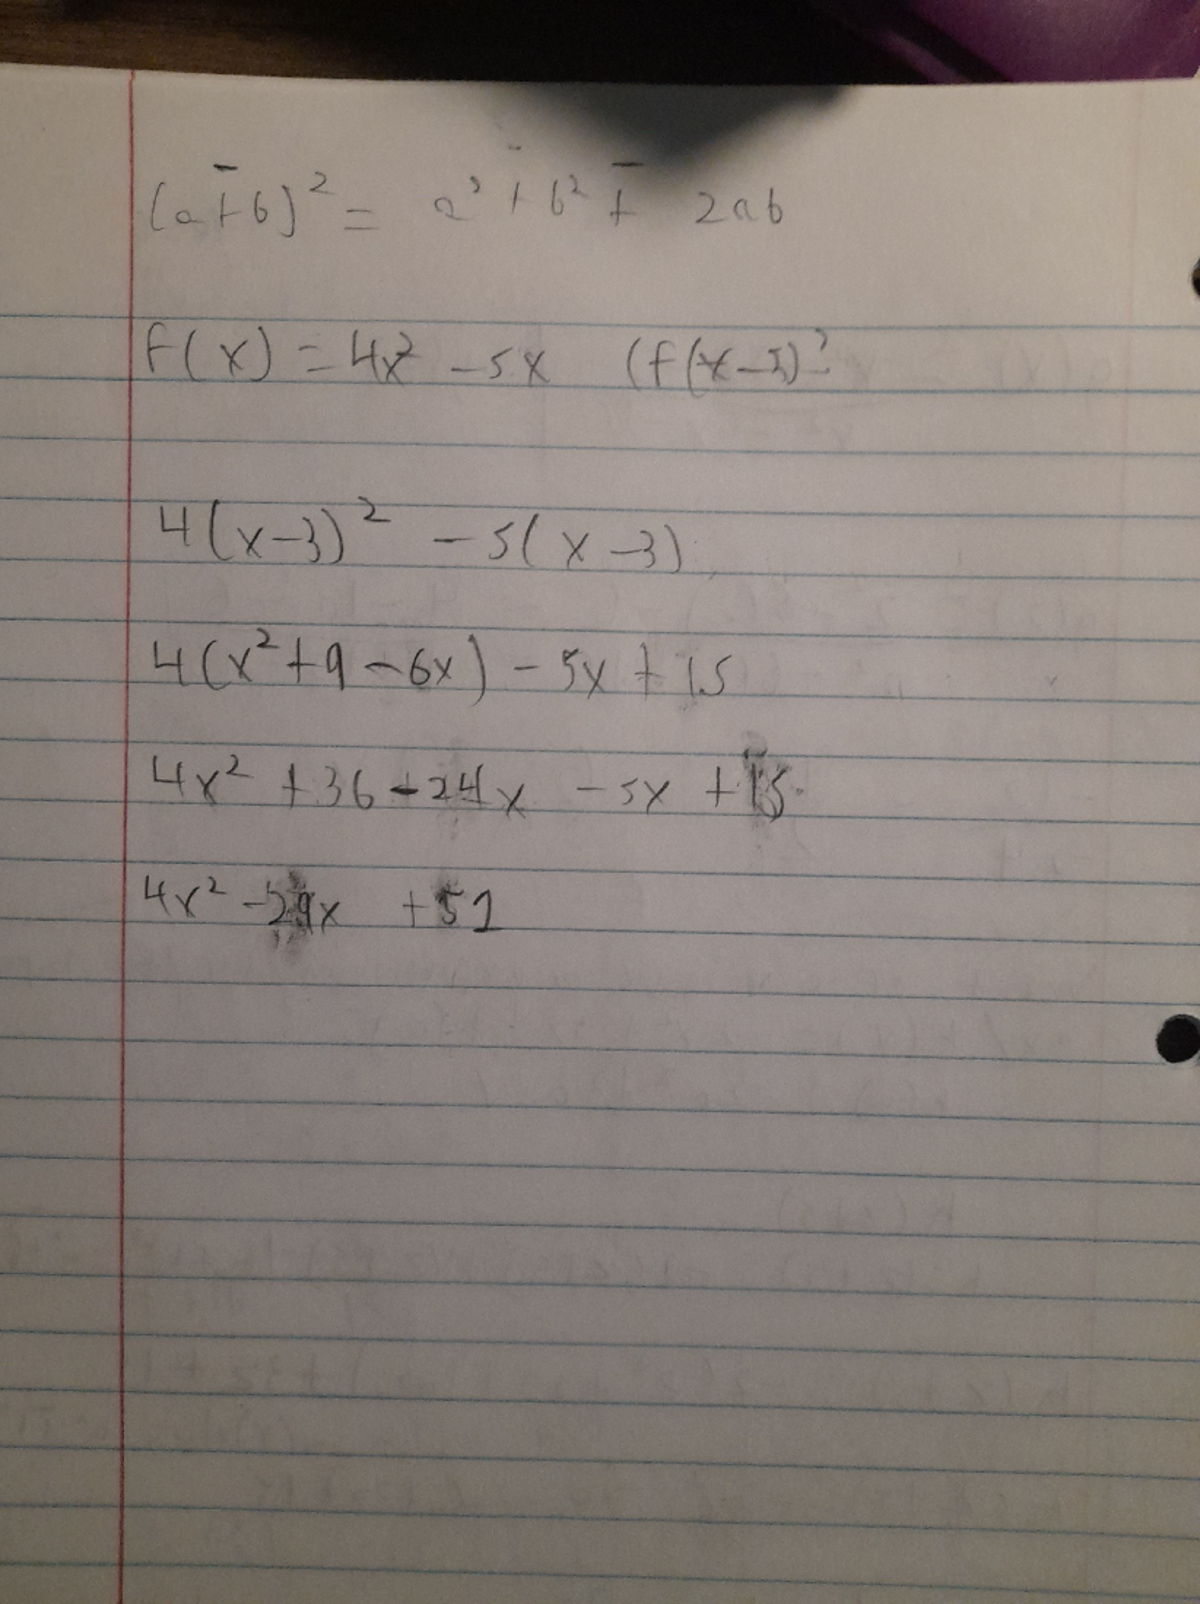 (a ∓ b)² = a² + b² ∓ 2ab
F(x) = 4x² - 5x (f(x-3)?
4(x-3)² - 5(x-3)
4(x² + 9 - 6x) - 5x + 15
4x² + 36 - 24x - 5x + 15
4x² - 29x + 51